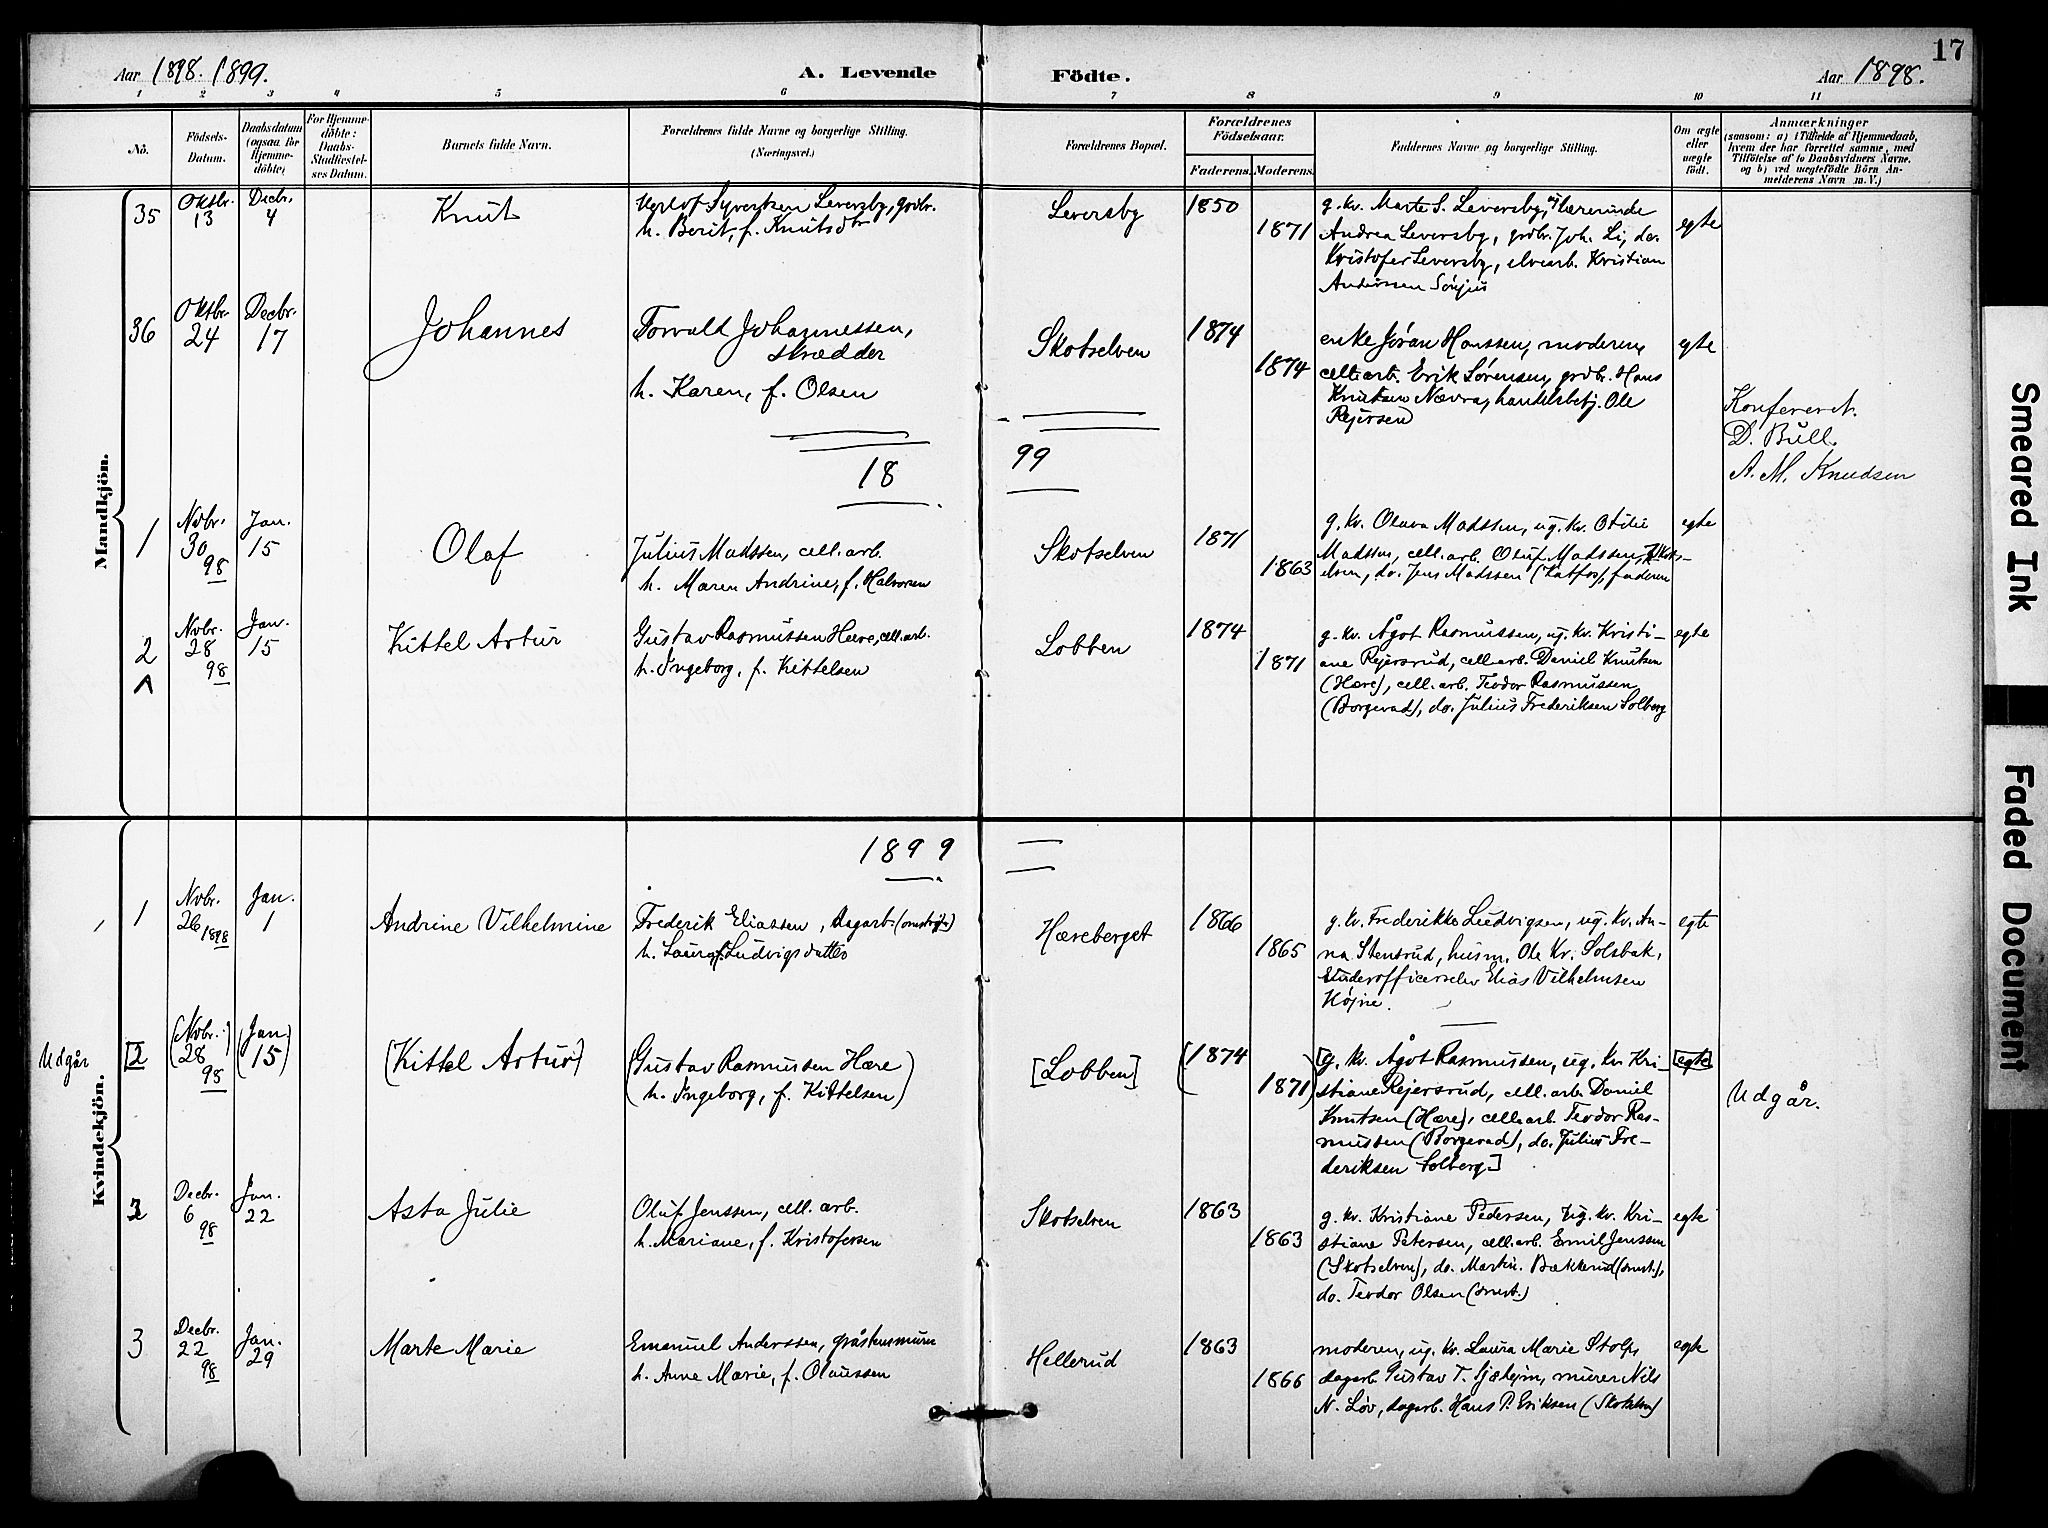 Aar 1898. 1899.
A. Levende
Födte.
Aar 1898.
17
1 2 3 4 5 6 7 8 9 10 11
Nö.
Födsels-
Datum.
Daabsdatum
(ogsaa for
Hjemme-
döbte)
For Hjemme-
döbte:
Daabs-
Stadfæstel-
ses Datum.
Barnets fulde Navn.
Forældrenes fulde Navne og borgerlige Stilling.
(Næringsvei.)
Forældrenes Bopæl.
Forældrenes
Födselsaar.
Faderens. Moderens.
Faddernes Navne og borgerlige Stilling.
Om ægte
eller
uægte
födt.
Anmærkninger
(saasom: a) i Tilfælde af Hjemmedaab,
hvem der har forrettet samme, med
Tilföielse af to Daabsvidners Navne.
og b) ved uægtefödte Börn An-
melderens Navn m. V.)
Mandkjön.
35
Oktbr.
13
Decbr.
4
Knut
Syvertsen Leversby, grdbr.
h. Berit, f. Knutsdtr
Leversby
1850
1871
g. kv. Marte S. Leversby, lærerinde
Andrea Leversby, grdbr. Joh. Li, do.
Kristofer Leversby, elvearb. Kristian
Anderssen
egte
36
Oktbr.
24
Decbr.
17
Johannes
Torvald Johannessen,
skrædder
h. Karen, f. Olsen
Skotselven
1874
1874
enke Jøran Hanssen, moderen,
cell.arb. Erik Sørensen, grdbr. Hans
Knutsen Nævra, handelsbetj. Ole
Rejersen
egte
Konfereret.
D. Bull.
A. M. Knudsen
18 99
1
Nvbr.
30
98
Jan.
15
Olaf
Julius Madssen, cell.arb.
h. Maren Andrine, f. Halvorsen
Skotselven
1871
1863
g. kv. Olava Madssen, ug. kv. Otilie
Madssen, cell.arb. Oluf Madssen, Skots-
elven, do. Jens Madssen (Katfos), faderen
egte
2
Nvbr.
28
98
Jan.
15
Kittel Artur
Gustav Rasmussen Hære, cell.arb.
h. Ingeborg, f. Kittelsen
Lobben
1874
1871
g. kv. Ågot Rasmussen, ug. kv. Kristi-
ane Rejersrud, cell.arb. Daniel Knutsen
(Hære), cell.arb. Teodor Rasmussen
(Borgerad), do. Julius Frederiksen Solberg
egte
Kvindekjön.
1899
1
Nvbr.
26 1898
Jan.
1
Andrine Vilhelmine
Frederik Eliassen, dagarb.
h. Laura, f. Ludvigsdatter
Hæreberget
1866
1865
g. kv. Frederikke Ludvigsen, ug. kv. An-
na Stensrud, husm. Ole Kr. Solsbak,
underofficerselev Elias Vilhelmsen
Højne.
egte
Udgår
[2]
(Nvbr.
28
98
(Jan.
15)
(Kittel Artur)
(Gustav Rasmussen Hære
h. Ingeborg, f. Kittelsen)
[Lobben]
(1874
1871)
[g. kv. Ågot Rasmussen, ug. kv. Kri-
stiane Rejersrud, cell.arb. Daniel
Knutsen (Hære), cell.arb Teodor Ras-
mussen (Borgerad), do. Julius Fre-
deriksen Solberg]
[egte]
Udgår.
2
Decbr.
6
98
Jan.
22
Asta Julie
Oluf Jenssen, cell. arb.
h. Mariane, f. Kristofersen
Skotselven
1863
1863
g. kv. Kristiane Pedersen, ug. kv. Kri-
stiane Petersen, cell.arb. Emil Jenssen
(Skotselven), do. Martin Bækkerud
do. Teodor Olsen
egte
3
Decbr.
22
98
Jan.
29
Marte Marie
Emanuel Anderssen, gråstensmurer
h. Anne Marie, f. Olaussen
Hellerud
1863
1866
moderen, ug. kv. Laura Marie Stolps
dagarb. Gustav T. murer Nils
N. Løv, dagarb. Hans P. Eriksen
egte
Smeared Ink
Faded Document